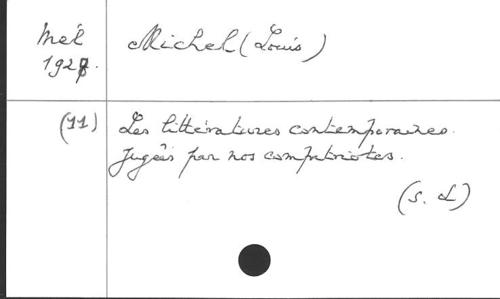 Mél Michel (Louis)
1928.
(11) Les littératures contemporaines.
Jugées par nos compatriotes.
(S. L)